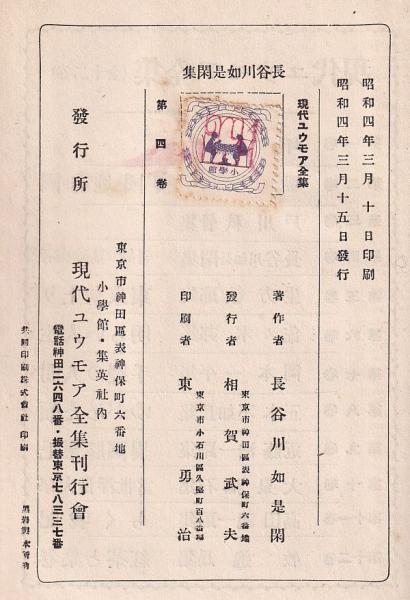 昭和四年三月十日印刷
昭和四年三月十五日發行
現代ユウモア全集
長谷川如是閑集
第四卷
小學館
著作者 長谷川如是閑
東京市神田區表神保町六番地
發行者 相賀武夫
東京市小石川區久堅町百八番地
印刷者 東勇治
東京市神田區表神保町六番地
小學館・集英社内
發行所 現代ユウモア全集刊行會
電話神田二六四八番・振替東京七八三三七番
共同印刷株式會社印刷